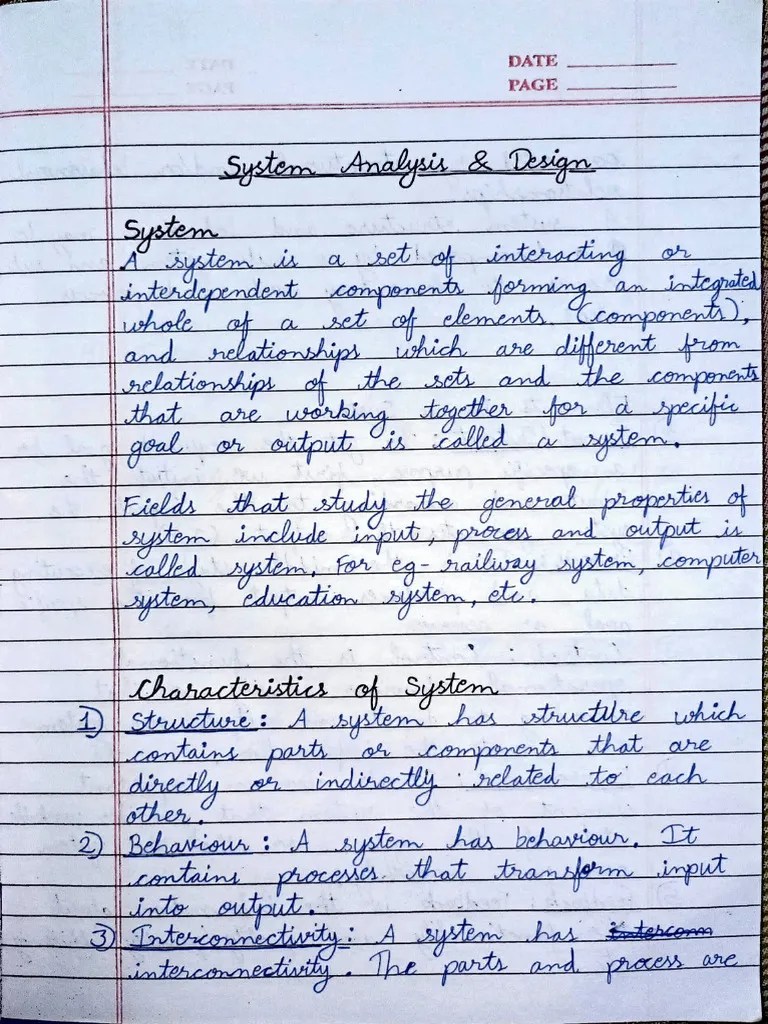 DATE
PAGE
System Analysis & Design
System
A system is a set of interacting or
interdependent components forming an integrated
whole of a set of elements (components),
and relationships which are different from
relationships of the sets and the components
that are working together for a specific
goal or output is called a system.
Fields that study the general properties of
system include input, process and output is
called system. For eg- railway system, computer
system, education system, etc.
Characteristics of System
1) Structure: A system has structure which
contains parts or components that are
directly or indirectly related to each
other.
2) Behaviour: A system has behaviour. It
contains processes that transform input
into output.
3) Interconnectivity: A system has interconn
interconnectivity. The parts and process are